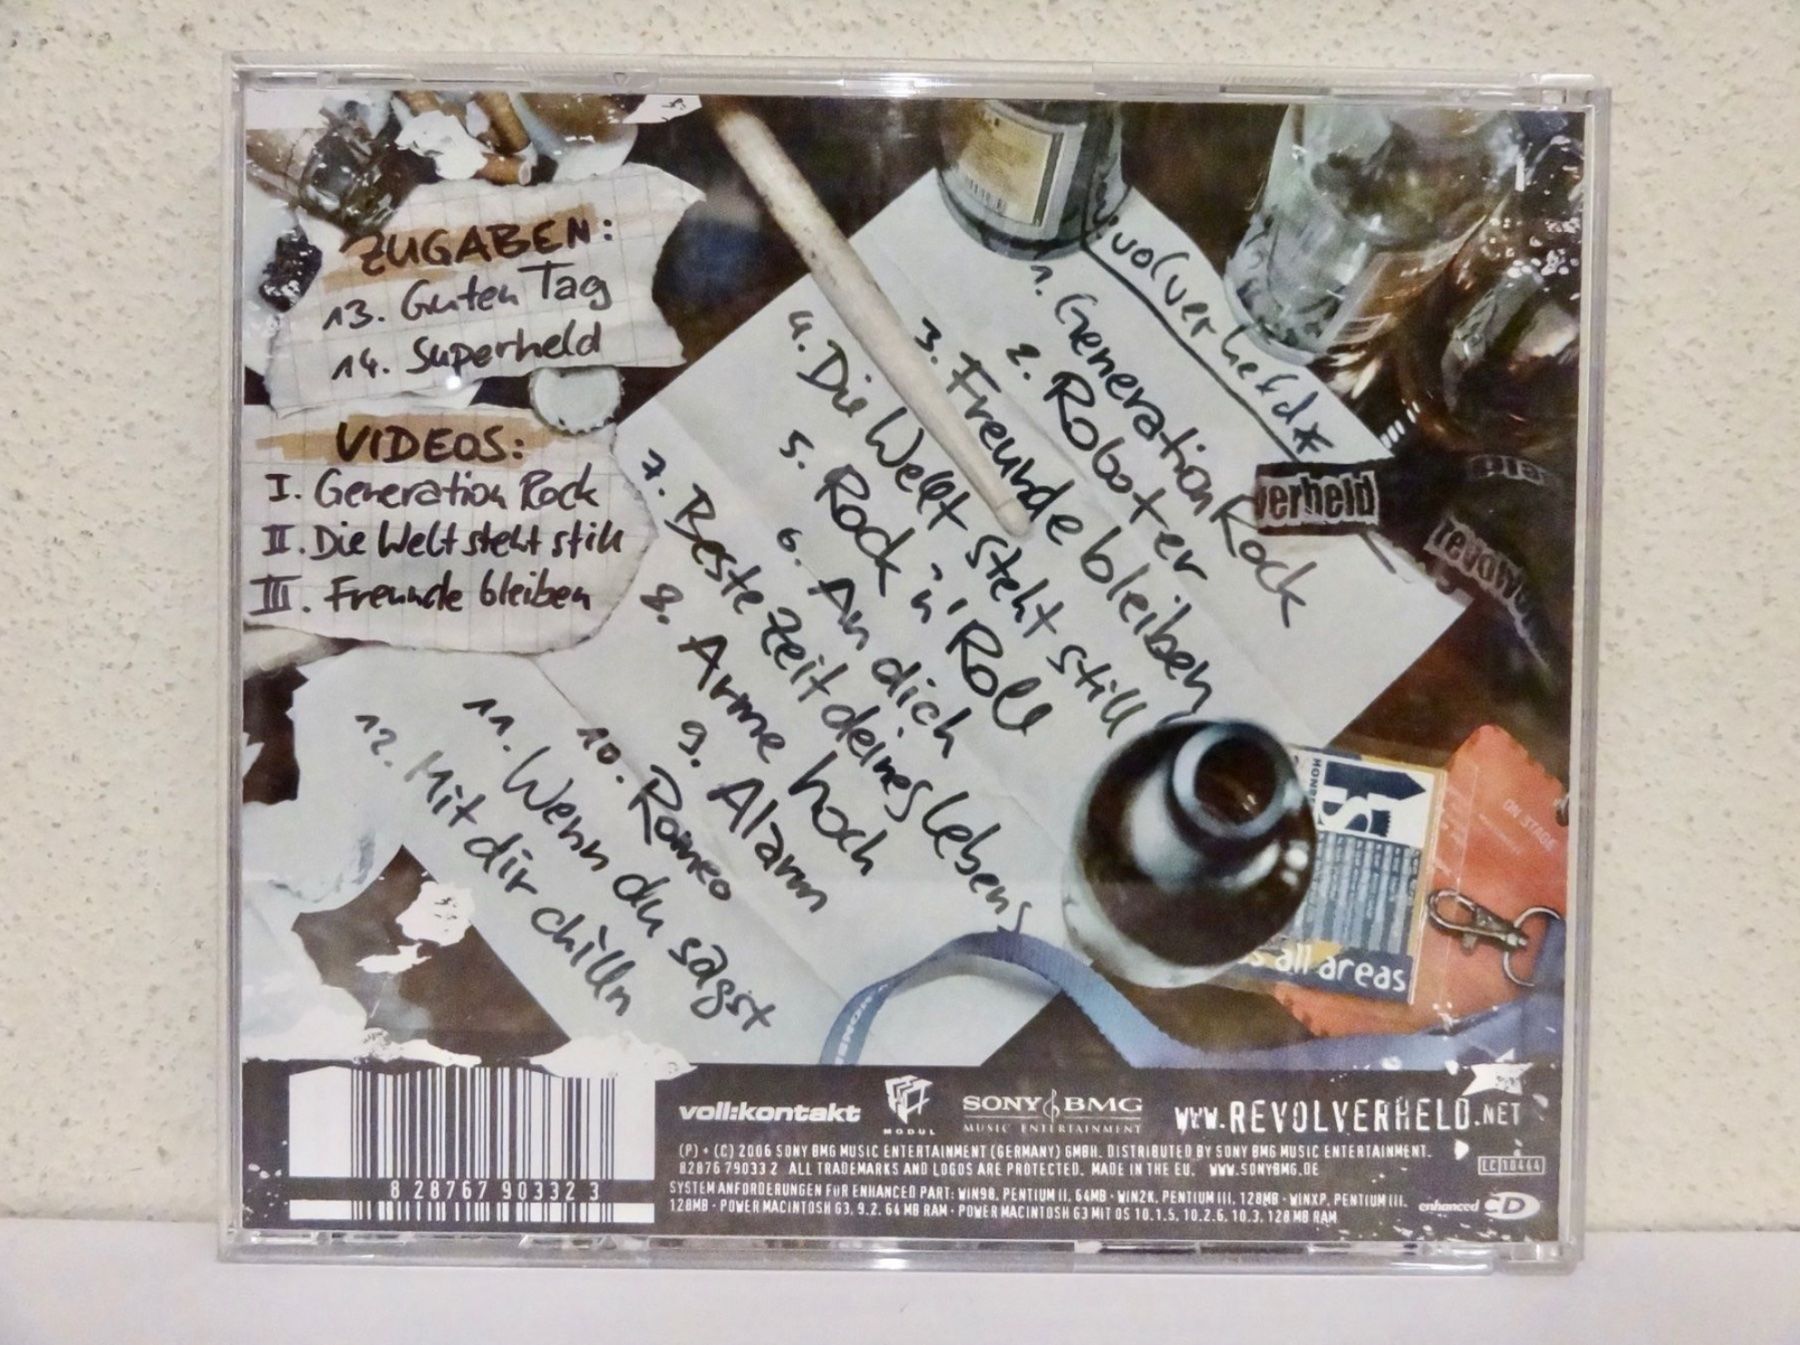 ZUGABEN:
13. Guten Tag
14. Superheld
VIDEOS:
I. Generation Rock
II. Die Welt steht still
III. Freunde bleiben
volverheld*
1. Generation Rock
2. Roboter
3. Freunde bleiben
4. Die Welt steht still
5. Rock 'n' Roll
6. An dich
7. Beste Zeit deines lebens
8. Arme hoch
9. Alarm
10. Romeo
11. Wenn du sagst
12. Mit dir chilln
verheld
ON STAGE
all areas
8 28767 90332 3
voll:kontakt
MODUL
SONY BMG
MUSIC ENTERTAINMENT
www.REVOLVERHELD.NET
(P) + (C) 2006 SONY BMG MUSIC ENTERTAINMENT (GERMANY) GMBH. DISTRIBUTED BY SONY BMG MUSIC ENTERTAINMENT.
82876 79033 2 ALL TRADEMARKS AND LOGOS ARE PROTECTED. MADE IN THE EU. WWW.SONYBMG.DE
LC 10464
SYSTEM ANFORDERUNGEN FÜR ENHANCED PART: WIN98, PENTIUM II, 64MB · WIN2K, PENTIUM III, 128MB · WINXP, PENTIUM III,
128MB · POWER MACINTOSH G3, 9.2, 64 MB RAM · POWER MACINTOSH G3 MIT OS 10.1.5, 10.2.6, 10.3, 128 MB RAM
enhanced CD